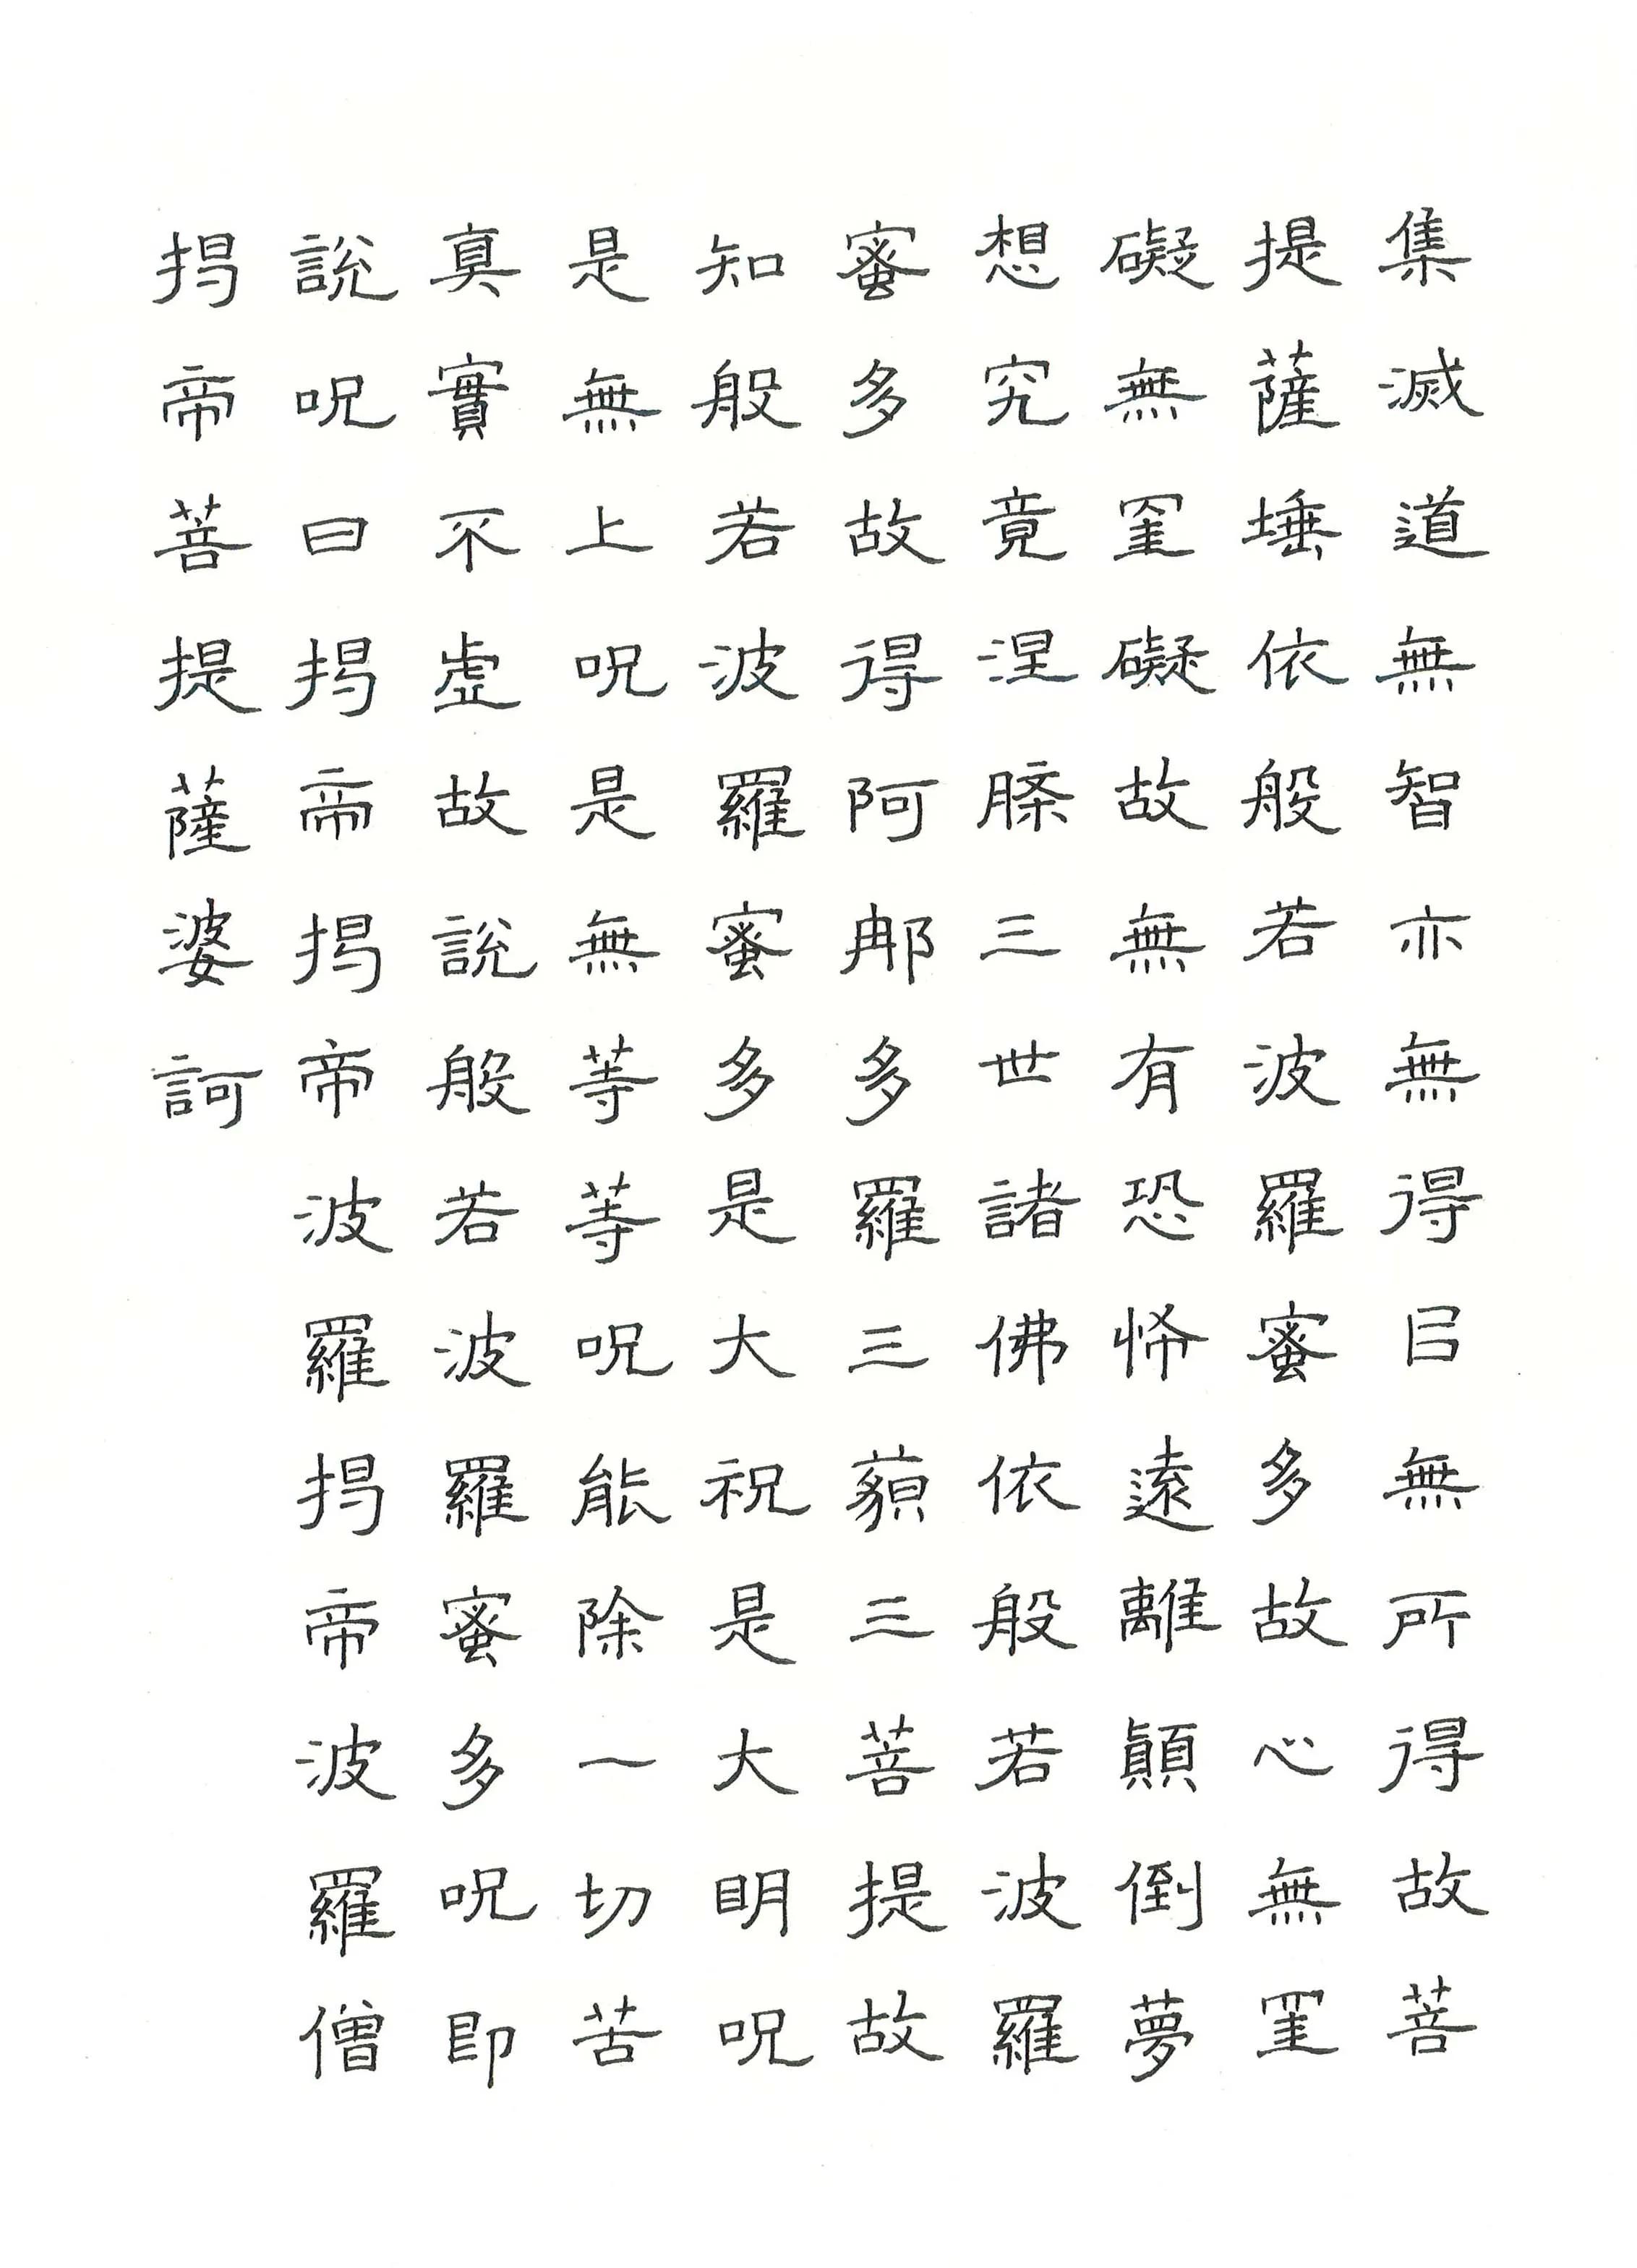 集滅道無智亦無得㠯無所得故菩
提薩埵依般若波羅蜜多故心無罣
礙無罣礙故無有恐怖遠離顛倒夢
想究竟涅槃三世諸佛依般若波羅
蜜多故得阿耨多羅三藐三菩提故
知般若波羅蜜多是大祝是大明呪
是無上呪是無等等呪能除一切苦
真實不虛故說般若波羅蜜多呪即
說呪曰揭帝揭帝波羅揭帝波羅僧
揭帝菩提薩婆訶